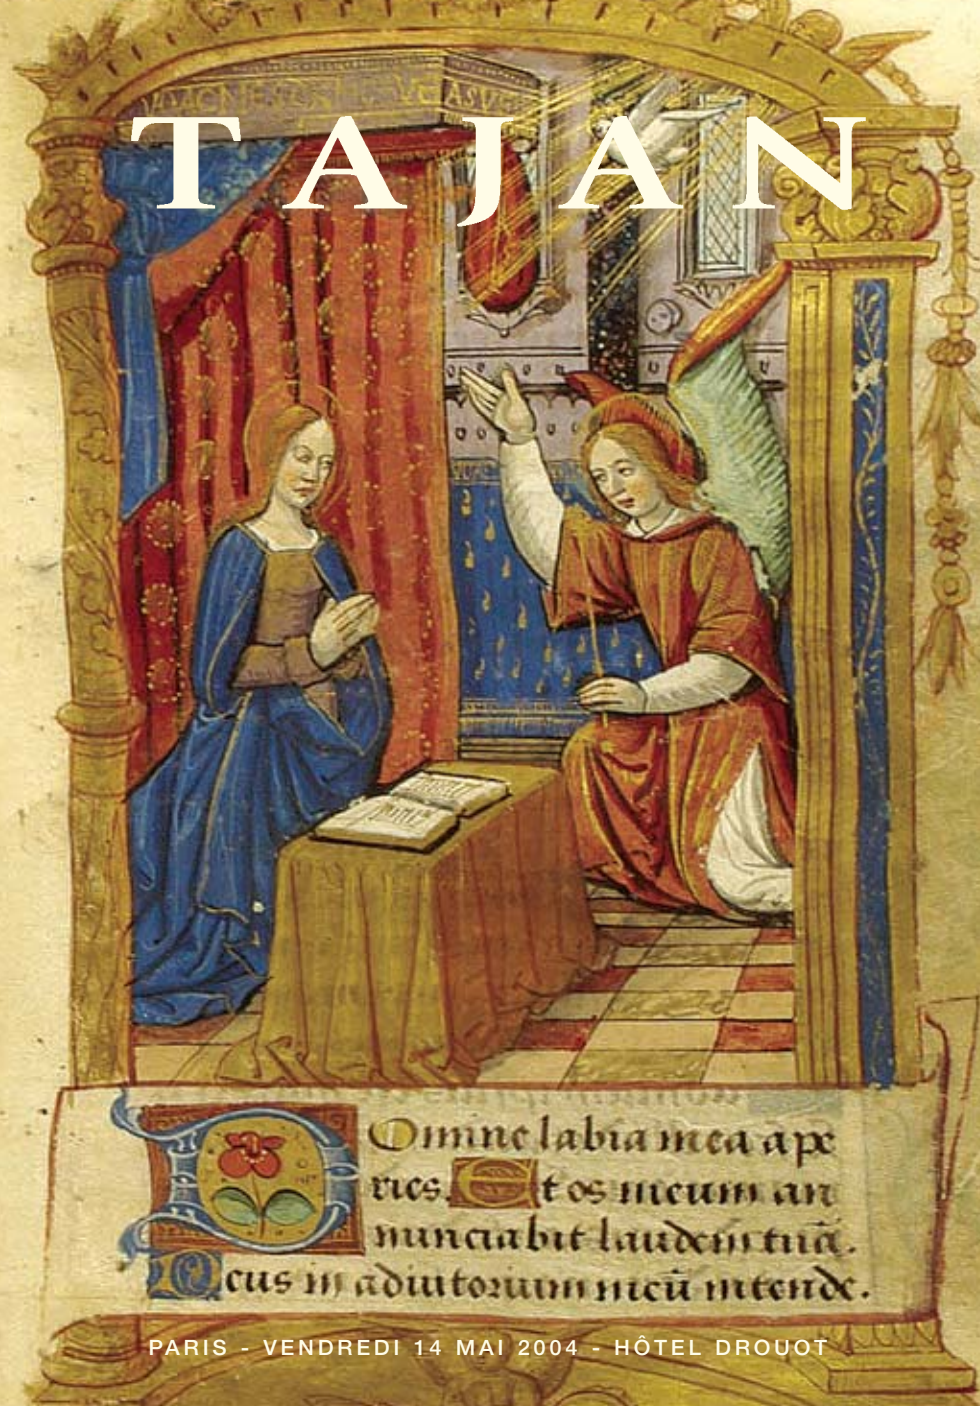 TAJAN
Domine labia mea ape
ries. Et os meum an
nunciabit laudem tuā.
Deus in adiutorium meū intende.
PARIS - VENDREDI 14 MAI 2004 - HÔTEL DROUOT